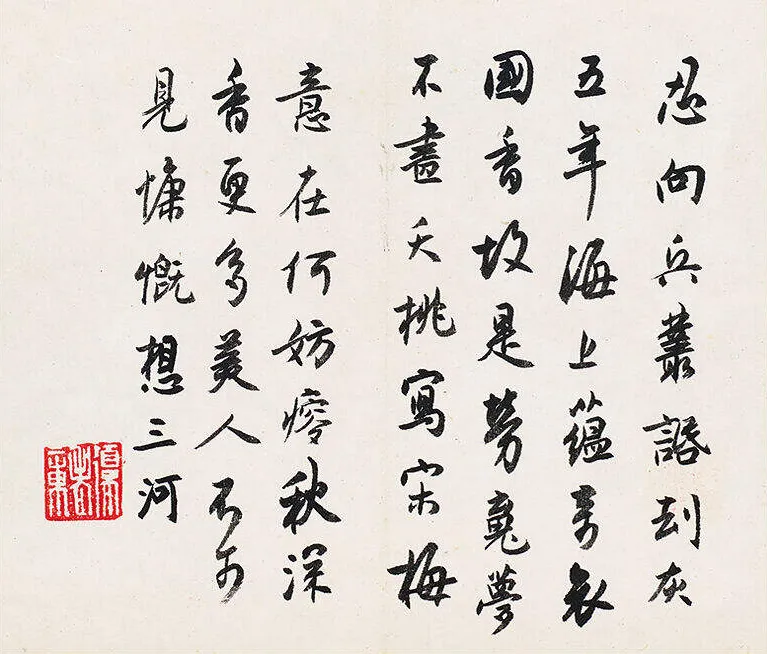 忍向兵叢話劫灰
五年海上蘊奇哀
國香故是勞魂夢
不畫夭桃寫宋梅
意在何妨瘦秋深
香更多美人不可
見慷慨想三河